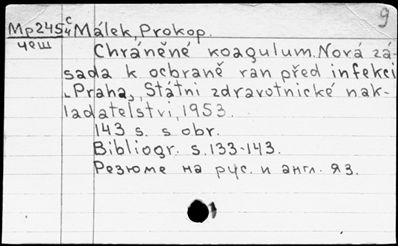 9
Мр245 с/4 Málek, Prokop.
чеш
Chráněné koagulum. Nová zá-
sada k ocbraně ran před infekci
Praha, Státni zdravotnické nak-
ladatelstvi, 1953.
143 s. s obr.
Bibliogr. s. 133-143.
Резюме на рус. и англ. яз.